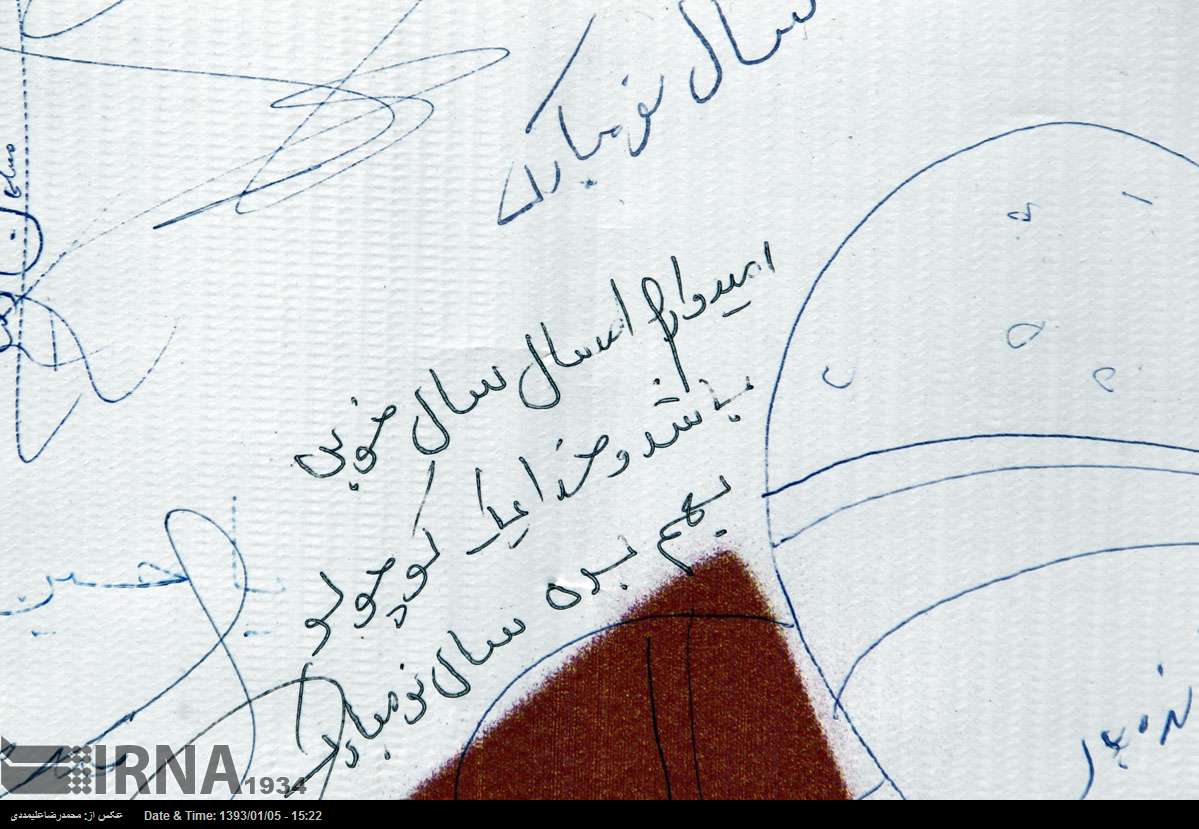 سال نو مبارک
امیدوارم امسال سال خوبی
باشد و خدا یک کوچولو
بهم بده سال نو مبارک
یا حسین
IRNA 1934
عکس از: محمدرضاعلیمددی Date & Time: 1393/01/05 - 15:22